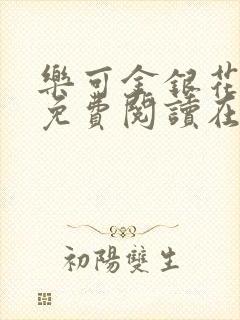 樂可金銀花
免費閱讀在
初陽雙生